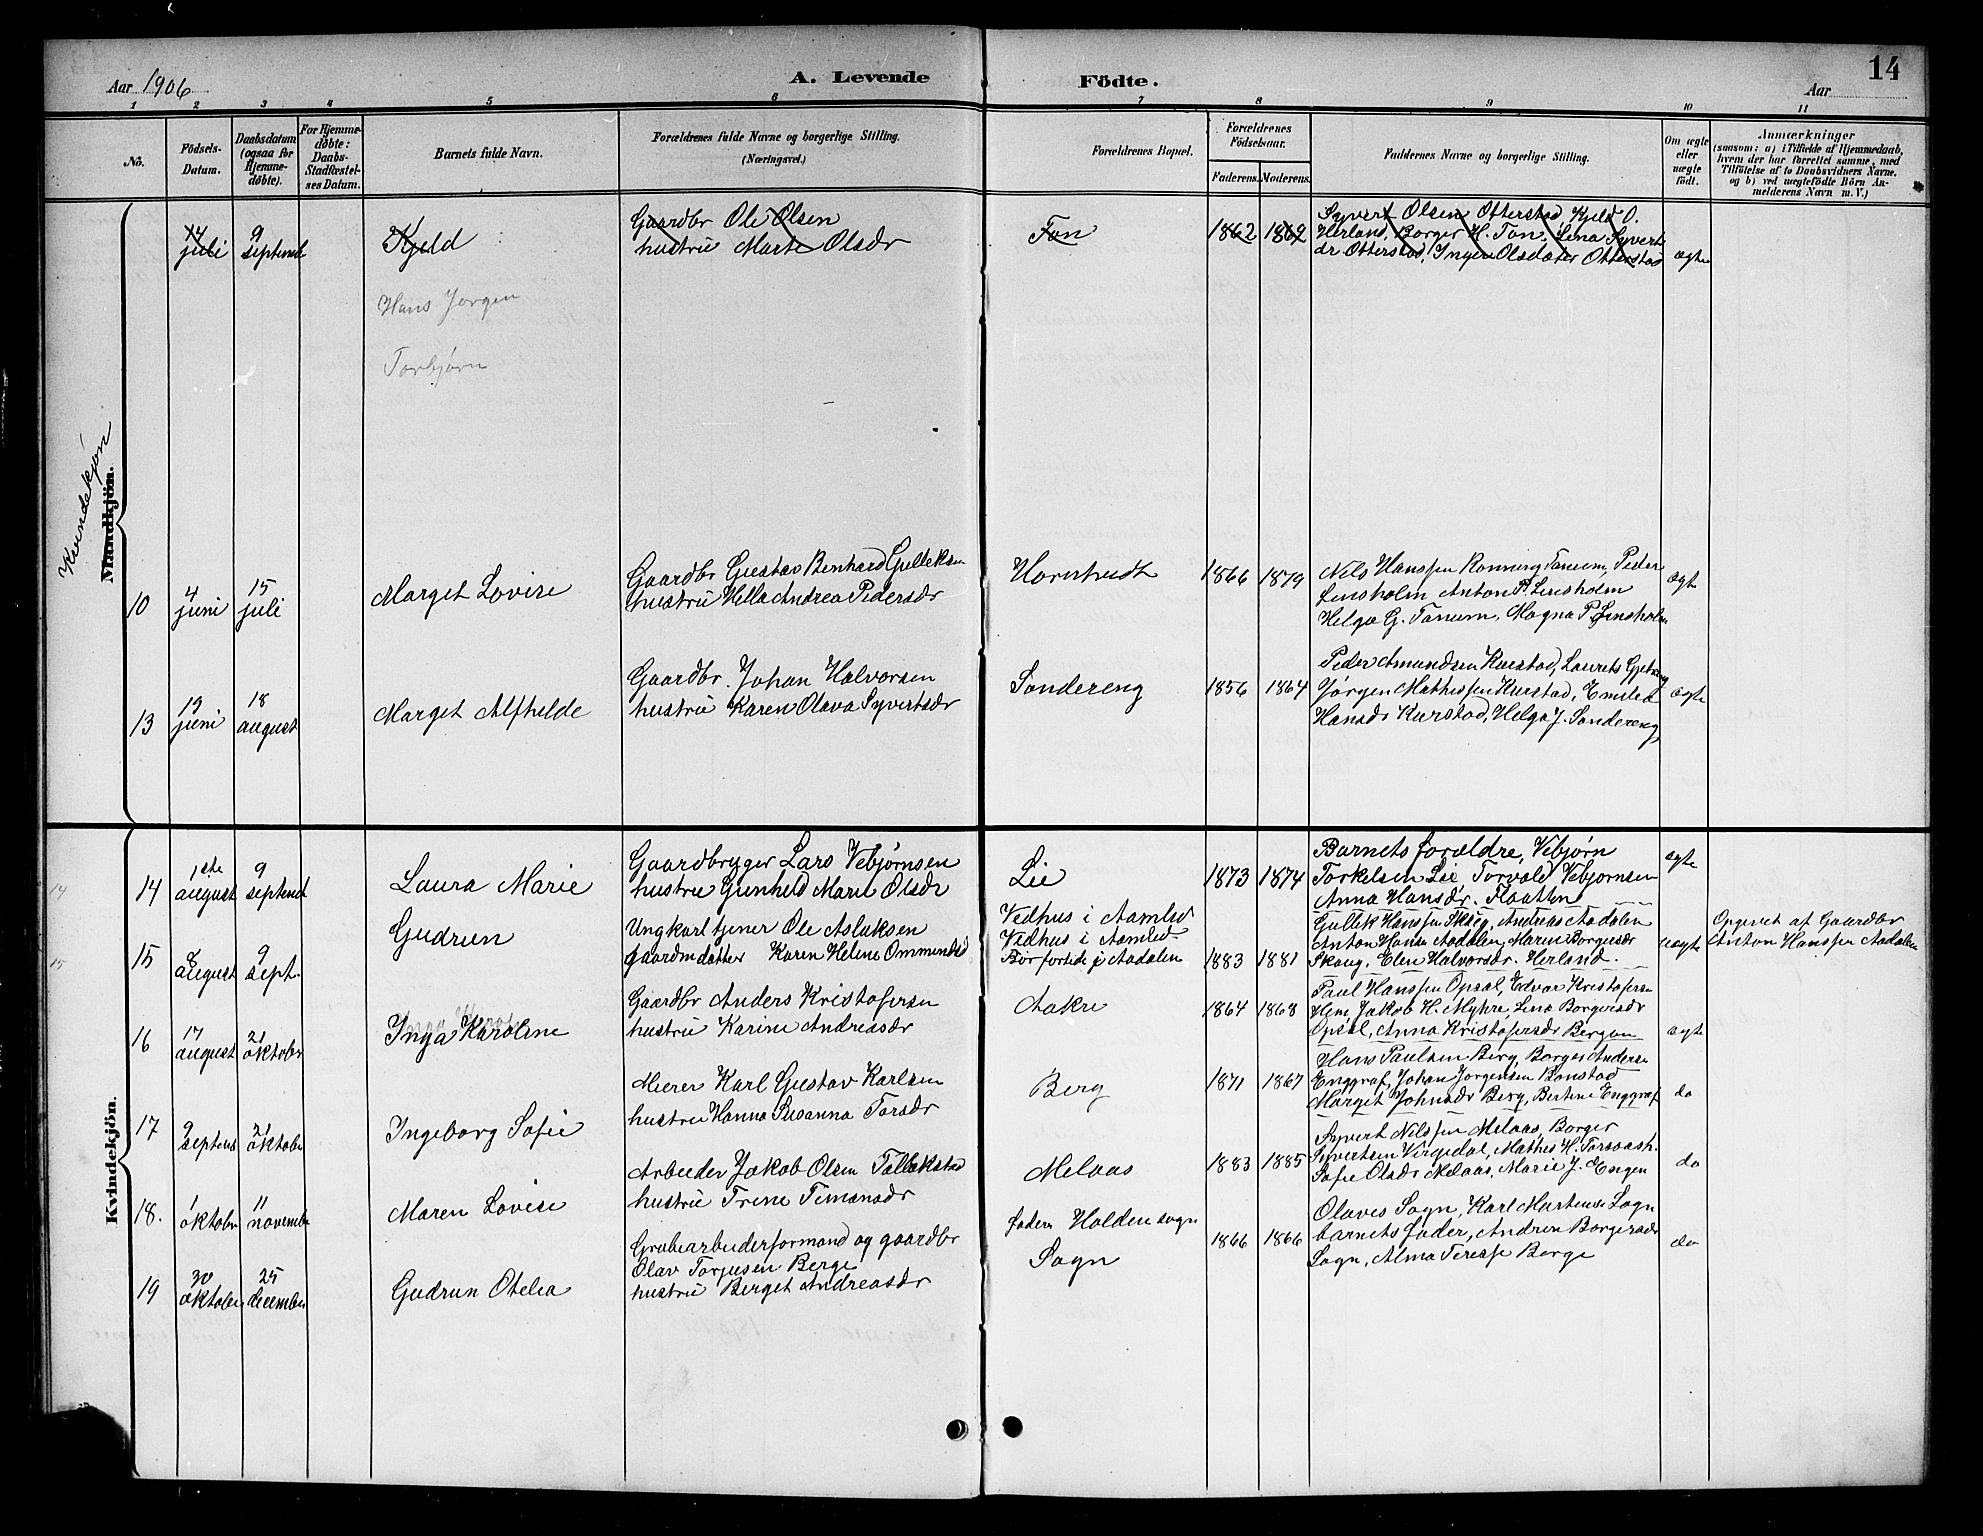 14
Aar 1906
A. Levende Födte.
Aar
1 2 3 4 5 6 7 8 9 10 11
No.
Födsels-Datum.
Daabsdatum (ogsaa for Hjemme-döbte).
For Hjemme-döbte: Daabs-Stadfæstel-ses Datum.
Barnets fulde Navn.
Forældrenes fulde Navne og borgerlige Stilling.
(Næringsvei.)
Forældrenes Bopæl.
Forældrenes Födselsaar.
Faderens. Moderens.
Faddernes Navne og borgerlige Stilling.
Om ægte eller uægte födt.
Anmærkninger
(saasom: a) i Tilfælde af Hjemmedaab,
hvem der har forrettet samme, med
Tilföielse af to Daabsvidners Navne.
og b) ved uægtefödte Börn An-
melderens Navn m. V.)
Kvindekjön
Mandkjön.
14 juli
9 septembr
Kjeld
Gaardbr Ole Olsen
hustru Marte Olsdr
Ton
1862 1862
Syvert Olsen Otterstad Kjeld O.
Herland, Borger H. Ton, Lena Syvert
dr Otterstad, Inger Olsdatter Otterstad
ægte
Hans Jørgen
Torbjørn
10
4 juni
15 juli
Marget Lovise
Gaardbr Gustav Bernhard Gulleksen
hustru Hella Andrea Pedersdr
Hornstvedt
1866 1879
Nils Hanssen Rønning Tanum, Peder
Linsholm Anton P. Linsholm
Helga G. Tanum, Magna P. Linsholm
ægte
13
19 juni
18 august
Marget Alfhilde
Gaardbr. Johan Halvorsen
hustru Karen Olava Syvertsdr
Sondereng
1856 1864
Peder Amundsen Kurstad, Laurits
Jørgen Mathissen Kurstad, Emilie
Hansdr Kurstad, Helga J. Sondereng
ægte
Kvindekjön.
14
14
1ste august
9 septembr
Laura Marie
Gaardbruger Lars Vebjørnsen
hustru Gunhild Marie Olsdr
Lie
1873 1874
Barnets forældre, Vebjørn
Torkelsen Lie Torvald Vebjørnsen
Anna Hansdr. Flaatten
ægte
15
15
8 august
9 sept.
Gudrun
Ungkarl tjener Ole Aslaksen
gaardmdatter Karen Heline Ommundsd
Vedhus i Aamlid
Vedhus i Aamlid
Bør fortide i Aadalen
1883 1881
Gullek Hanssen Skaug, Andreas Aadalen
Anton Hansen Aadalen, Maren Borgersdr
Skaug, Elen Halvorsdr. Herland.
uægte
Opgivet af Gaardbr
Anton Hanssen Aadalen
16
17 august
21 oktobr
Inga Karoline
Gaardbr Anders Kristofersen
hustru Karine Andreasdr
Aakre
1864 1868
Paul Hanssen Opsal, Edvar Kristofersen
Hem, Jakob H. Myhre, Lina Borgersdr
Opsal, Anna Kristofersdr Bergan
ægte
17
9 septembr
21 oktobr
Ingeborg Sofie
Mierer Karl Gustav Karlsen
hustru Hanna Susanna Torsdr
Berg
1871 1867
Hans Paulsen Berg, Borger Andersen
Enggraf, Johan Jørgensen Bonstad
Marget Johnsdr Berg, Bertine Enggraf
do
18.
1 oktobr
11 novembr
Maren Lovise
Arbeider Jakob Olsen Tollekstad
hustru Trine Timansdr
Melaas
1883 1885
Syvert Nilssen Melaas, Borger
Syvertsen Virgedal, Mathis H. Torsaash.
Sofie Olsdr Melaas, Marie J. Engen
do
19
30 oktober
25 december
Gudrun Otelia
Grubearbeiderformand og gaardbr
Olav Torjusen Berge
hustru Berget Andreasdr
faderen Holden sogn
Sogn
1866 1866
Olaves Sogn, Karl Martinus Sogn
barnets fader, Andrea Borgersdr
Sogn, Alma Terese Borge
do